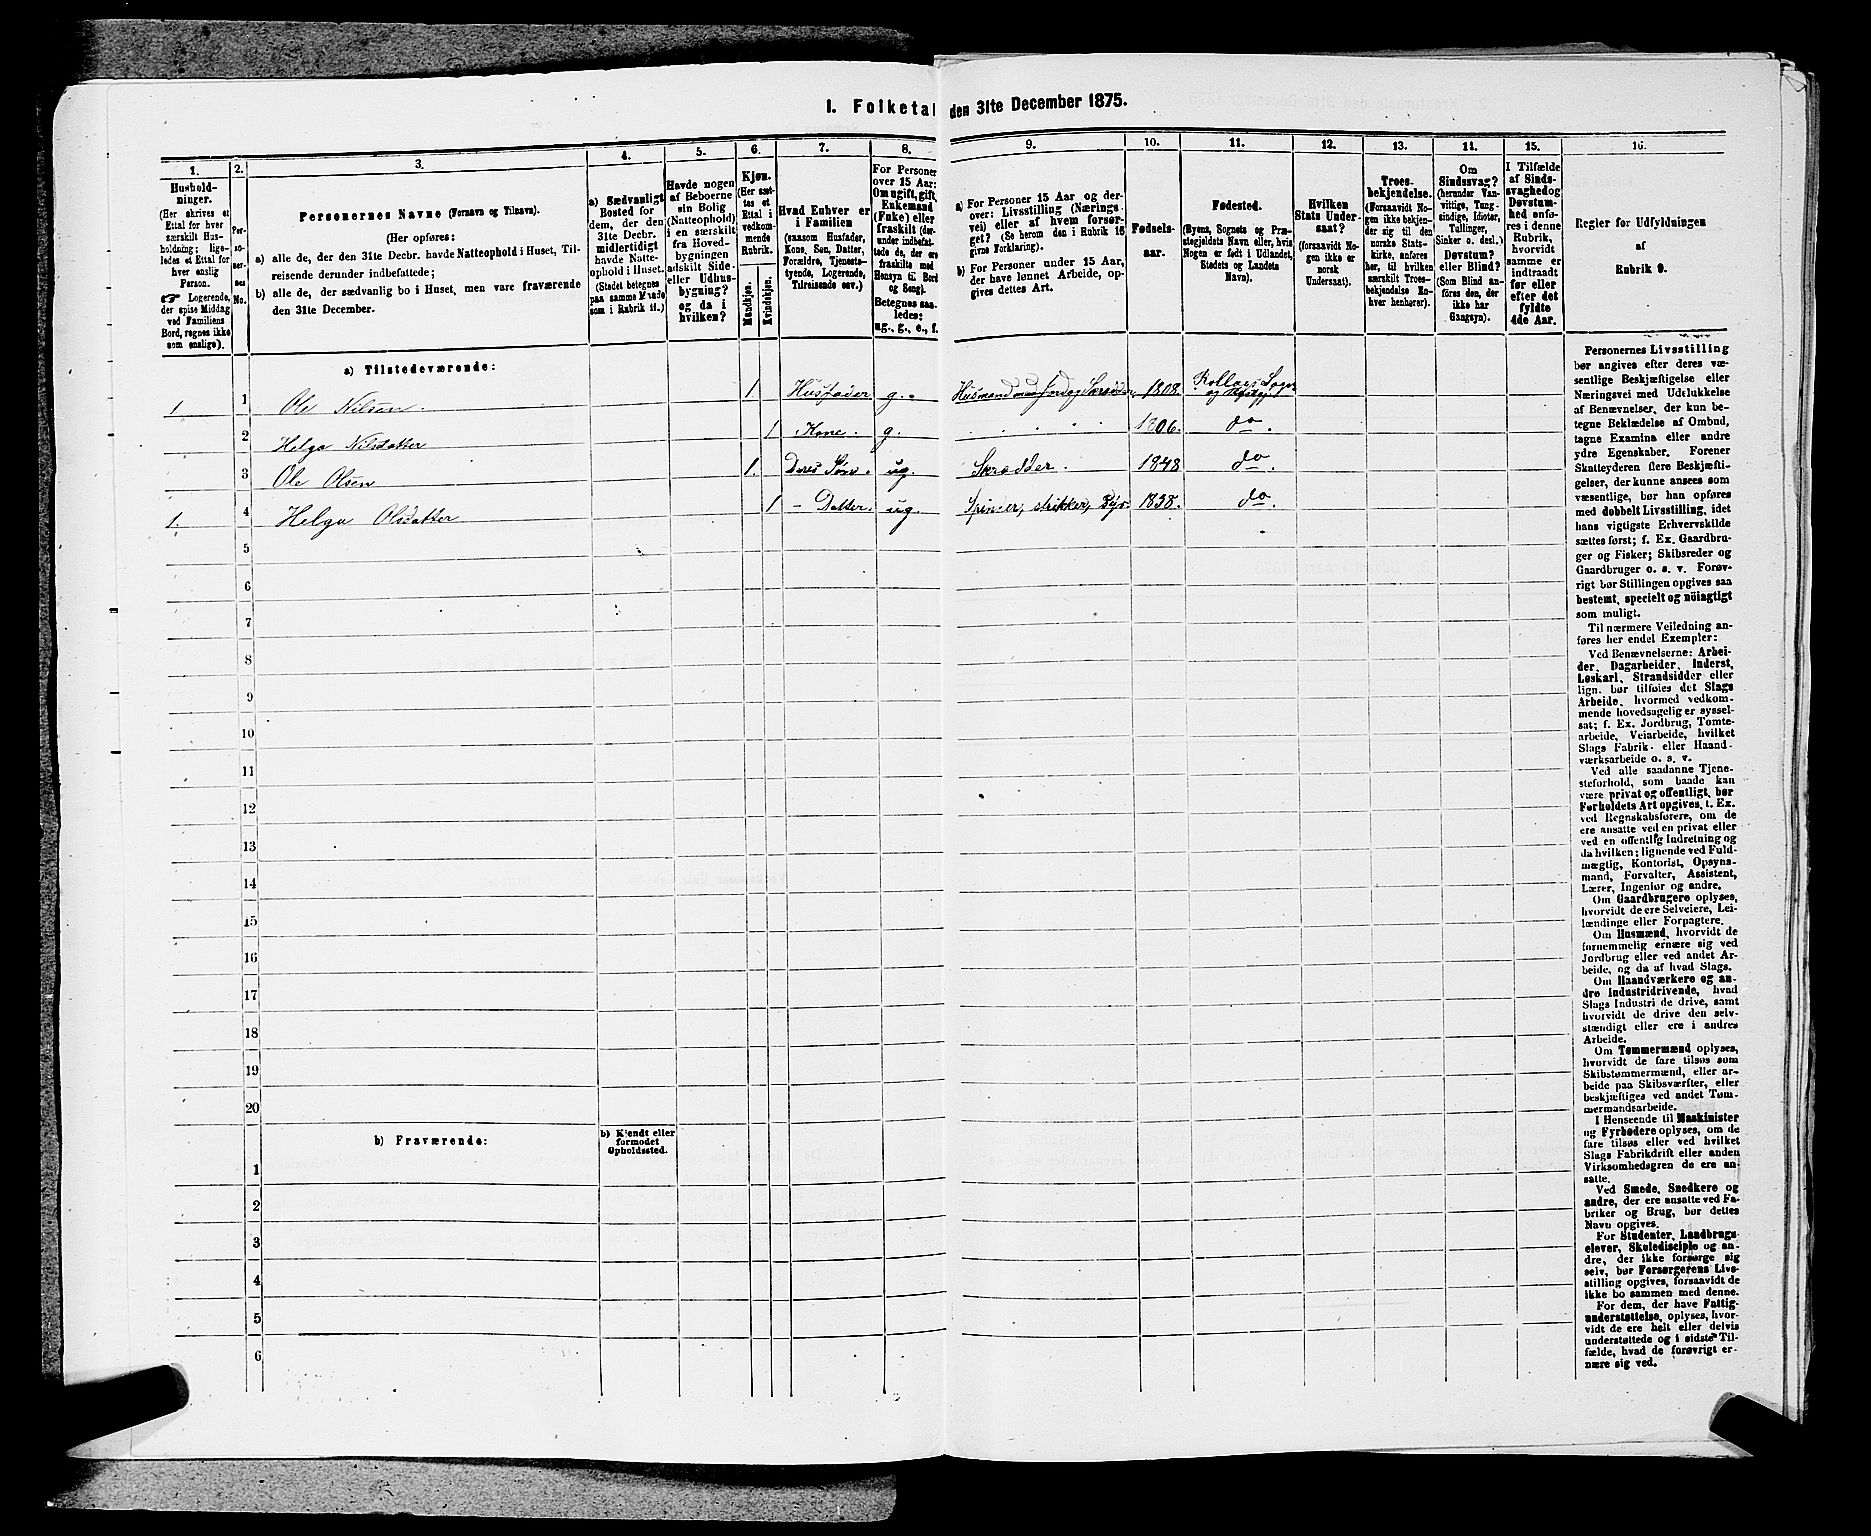 I. Folketal den 31te December 1875.
1.
Hushold-
ninger.
(Her skrives et
Ettal for hver
særskilt Hus-
holdning; lige-
ledes et Ettal for
hver enslig
Person.
☞ Logerende,
der spise Middag
ved Familiens
Bord, regnes ikke
som enslige).
2.
Per-
so-
ner-
nes
No.
3.
Personernes Navne (Fornavn og Tilnavn).
(Her opføres:
a) alle de, der den 31te Decbr. havde Natteophold i Huset, Til-
reisende derunder indbefattede;
b) alle de, der sædvanlig bo i Huset, men vare fraværende
den 31te December.
4.
a) Sædvanligt
Bosted for
dem, der den
31te Decbr.
midlertidigt
havde Natte-
ophold i Huset.
(Stedet betegnes
paa samme Maade
som i Rubrik 11.)
5.
Havde nogen
af Beboerne
sin Bolig
(Natteophold)
i en særskilt
fra Hoved-
bygningen
adskilt Side-
eller Udhus-
bygning?
og da i
hvilken?
6.
Kjøn.
(Her sæt-
tes et
Ettal i
vedkom-
mende
Rubrik.
Mandkjøn.
Kvindekjøn.
7.
Hvad Enhver er
i Familien
(saasom Husfader,
Kone, Søn, Datter,
Forældre, Tjenests-
tyende, Logerende,
Tilreisende osv.)
8.
For Personer
over 15 Aar:
Om ugift, gift,
Enkemand
(Enke) eller
fraskilt (der-
under indbefat-
tede de, der ere
fraskilte med
Hensyn til Bord
og Seng).
Betegnes saa-
ledes:
ug., g., e., f.
9.
a) For Personer 15 Aar og der-
over: Livsstilling (Nærings-
vei) eller af hvem forsør-
get? (Se herom den i Rubrik 15
givne Forklaring).
b) For Personer under 15 Aar,
der have lønnet Arbeide, op-
gives dettes Art.
10.
Fødsels-
aar.
11.
Fødested.
(Byens, Sognets og Præ-
stegjeldets Navn, eller, hvis
Nogen er født i Udlandet,
Stedets og Landets
Navn).
12.
Hvilken
Stats Under-
saat?
(forsaavidt No-
gen ikke er
norsk
Undersaat).
13.
Troes-
bekjendelse.
(Forsaavidt No-
gen ikke bekjen-
der sig til den
norske Stats-
kirke, anføres
her, til hvilken
særskilt Troes-
bekjendelse En-
hver henhører).
14.
Om
Sindssvag?
(herunder Van-
vittige, Tung-
sindige, Idioter,
Tullinger,
Sinker o. desl.)
Døvstum?
eller Blind?
(Som Blind an-
føres den, der
ikke har
Gangsyn).
15.
I Tilfælde
af Sinds-
svaghed og
Døvstum-
hed anfø-
res i denne
Rubrik,
hvorvidt
samme er
indtraadt
før eller
efter det
fyldte
4de Aar.
16.
Regler for Udfyldningen
af
Rubrik 9.
a) Tilstedeværende:
1. 1 Ole Nilsen. 1 Husfader g. Husmand med Jord og Skrædder, 1808. Rollags Sogn og Prstgj.
2 Helga Nilsdatter 1 Kone. g. 1806. do.
3 Ole Olsen 1. Deres Søn. ug. Skrædder. 1848 do.
1. 4 Helga Olsdatter 1 - Datter. ug. Spinder, strikker, syr. 1838. do
5
6
7
8
9
10
11
12
13
14
15
16
17
18
19
20
b) Fraværende:
b) Kjendt eller
formodet
Opholdssted.
1
2
3
4
5
6
Personernes Livsstilling
bør angives efter deres væ-
sentlige Beskjæftigelse eller
Næringsvei med Udelukkelse
af Benævnelser, der kun be-
tegne Beklædelse af Ombud,
tagne Examina eller andre
ydre Egenskaber. Forener
Skatteyderen flere Beskjæfti-
gelser, der kunne ansees som
væsentlige, bør han opføres
med dobbelt Livsstilling, idet
hans vigtigste Erhvervskilde
sættes først; f. Ex. Gaardbru-
ger og Fisker; Skibsreder og
Gaardbruger o. s. v. Forøv-
rigt bør Stillingen opgives saa
bestemt, specielt og nøiagtigt
som muligt.
Til nærmere Veiledning an-
føres her endel Exempler:
Ved Benævnelserne: Arbei-
der, Dagarbeider, Inderst,
Løskarl, Strandsidder eller
lign. bør tilføies det Slags
Arbeide, hvormed vedkom-
mende hovedsagelig er syssel-
sat; f. Ex. Jordbrug, Tomte-
arbeide, Veiarbeide, hvilket
Slags Fabrik- eller Haand-
værksarbeide o. s. v.
Ved alle saadanne Tjene-
steforhold, som baade kan
være privat og offentligt, bør
Forholdets Art opgives, t. Ex.
ved Regnskabsførere, om de
ere ansatte ved en privat eller
ved en offentlig Indretning og
da hvilken; lignende ved Fuld-
mægtig, Kontorist, Opsyns-
mand, Forvalter, Assistent,
Lærer, Ingeniør og andre.
Om Gaardbrugere oplyses,
hvorvidt de ere Selveiere, Lei-
lændinge eller Forpagtere.
Om Husmænd, hvorvidt de
fornemmelig ernære sig ved
Jordbrug eller ved andet Ar-
beide, og da af hvad Slags.
Om Haandværkere og an-
dre Industridrivende, hvad
Slags Industri de drive, samt
hvorvidt de drive den selv-
stændigt eller ere i andres
Arbeide.
Om Tømmermænd oplyses,
hvorvidt de fare tilsøs som
Skibstømmermænd, eller ar-
beide paa Skibsværfter, eller
beskjæftiges ved andet Tøm-
mermandsarbeide.
I Henseende til Maskinister
og Fyrbødere oplyses, om de
fare tilsøs eller ved hvilket
Slags Fabrikdrift eller anden
Virksomhedsgren de ere an-
satte.
Ved Smede, Snedkere og
andre, der ere ansatte ved Fa-
briker og Brug, bør dettes
Navn opgives.
For Studenter, Landbrugs-
elever, Skoledisciple og an-
dre, der ikke forsørge sig
selv, bør Forsørgerens Livs-
stilling opgives, forsaavidt de
ikke bo sammen med denne.
For dem, der have Fattig-
understøttelse, oplyses, hvor-
vidt de ere helt eller delvis
understøttede og i sidste Til-
fælde, hvad de forøvrigt er-
nære sig ved.